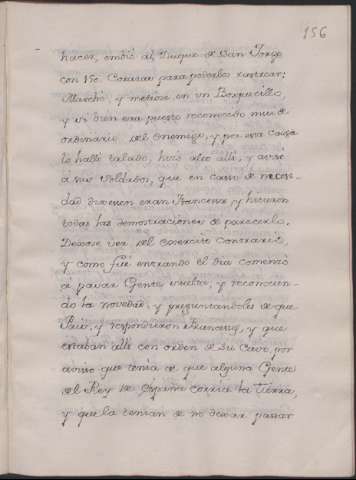 156
hacer, embió al Duque de San Jorge
con 150. Corazas para poderlos rastrear;
Marchó, y metiose en un Bosquecillo,
y si bien era puesto reconocido mui de
ordinario del enemigo, y por esa causa
le halló talado, hizo alto alli, y avisó
a sus Soldados, que en caso de neces-
dad dixesen eran Franceses, y hiciesen
todas las demostraciones de parecerlo.
Dexose ver del exercito contrario,
y como fué entrando el dia comenzó
á pasar Gente suelta, y reconocien-
do la novedad, y preguntandoles de que
Pais, y respondieron Franceses, y que
estaban alli con orden de su Cavo, por
aviso que tenia de que alguna Gente
del Rey de España corria la tierra,
y que la tenian de no dexar pasar